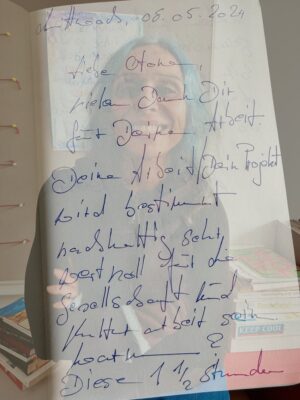 06.05.2024
Liebe
vielen Dank Dir
für Deine Arbeit.
Deine Arbeit/Dein Projekt
wird bestimmt
nachhaltig sehr
wertvoll für die
Gesellschaft und
Kulturarbeit sein
Diese 1 1/2 Stunden
KEEP COOL